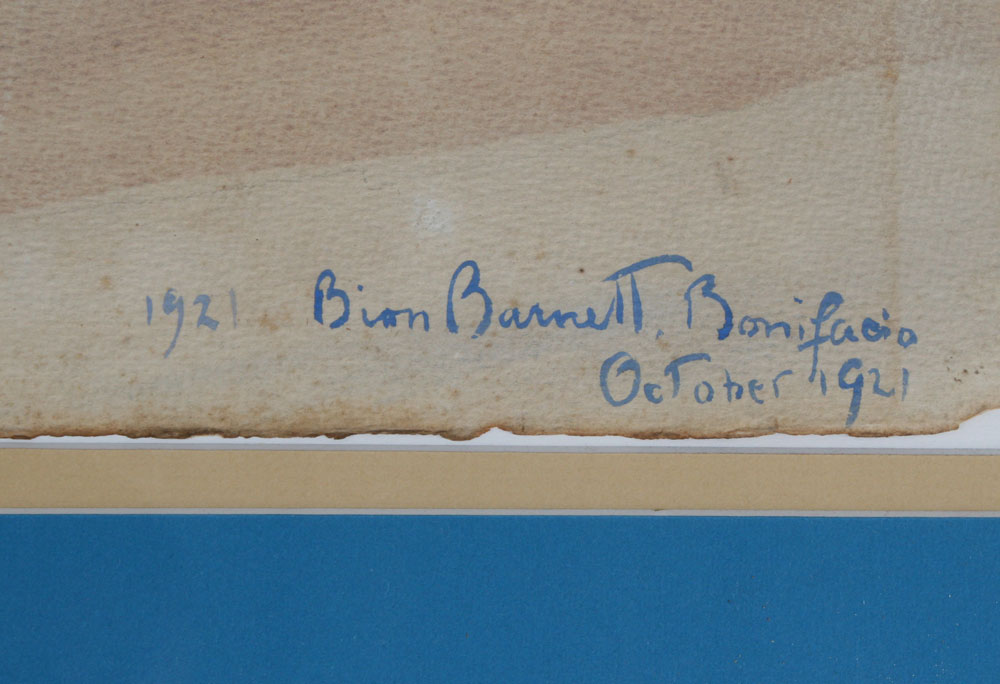 1921 Bion Barnett. Bonifacio
October 1921